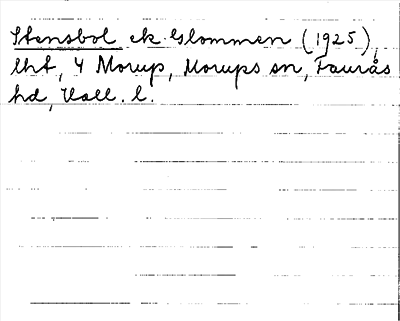 Stensbol ek. Glommen (1925),
lht, 4 Morup, Morups sn, Faurås
hd, Hall. l.